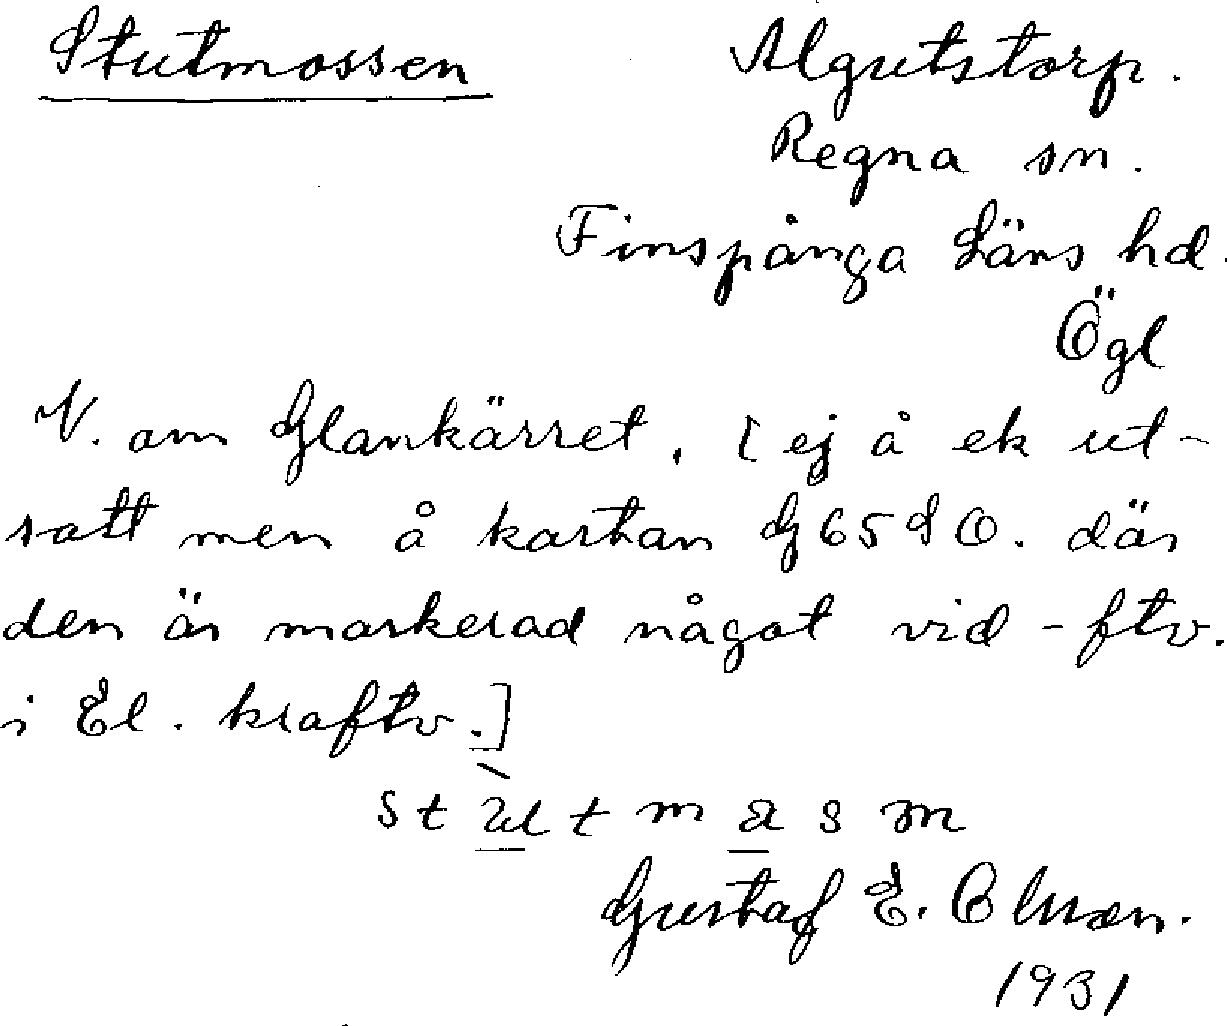 Stutmossen Algutstorp.
Regna sn.
Finspånga Läns hd.
Ögl
V. om Glankärret. [ej å ek ut-
satt men å kartan G65SO. där
den är markerad något vid -ftv.
i El. kraftv.]
Gustaf E.
1931